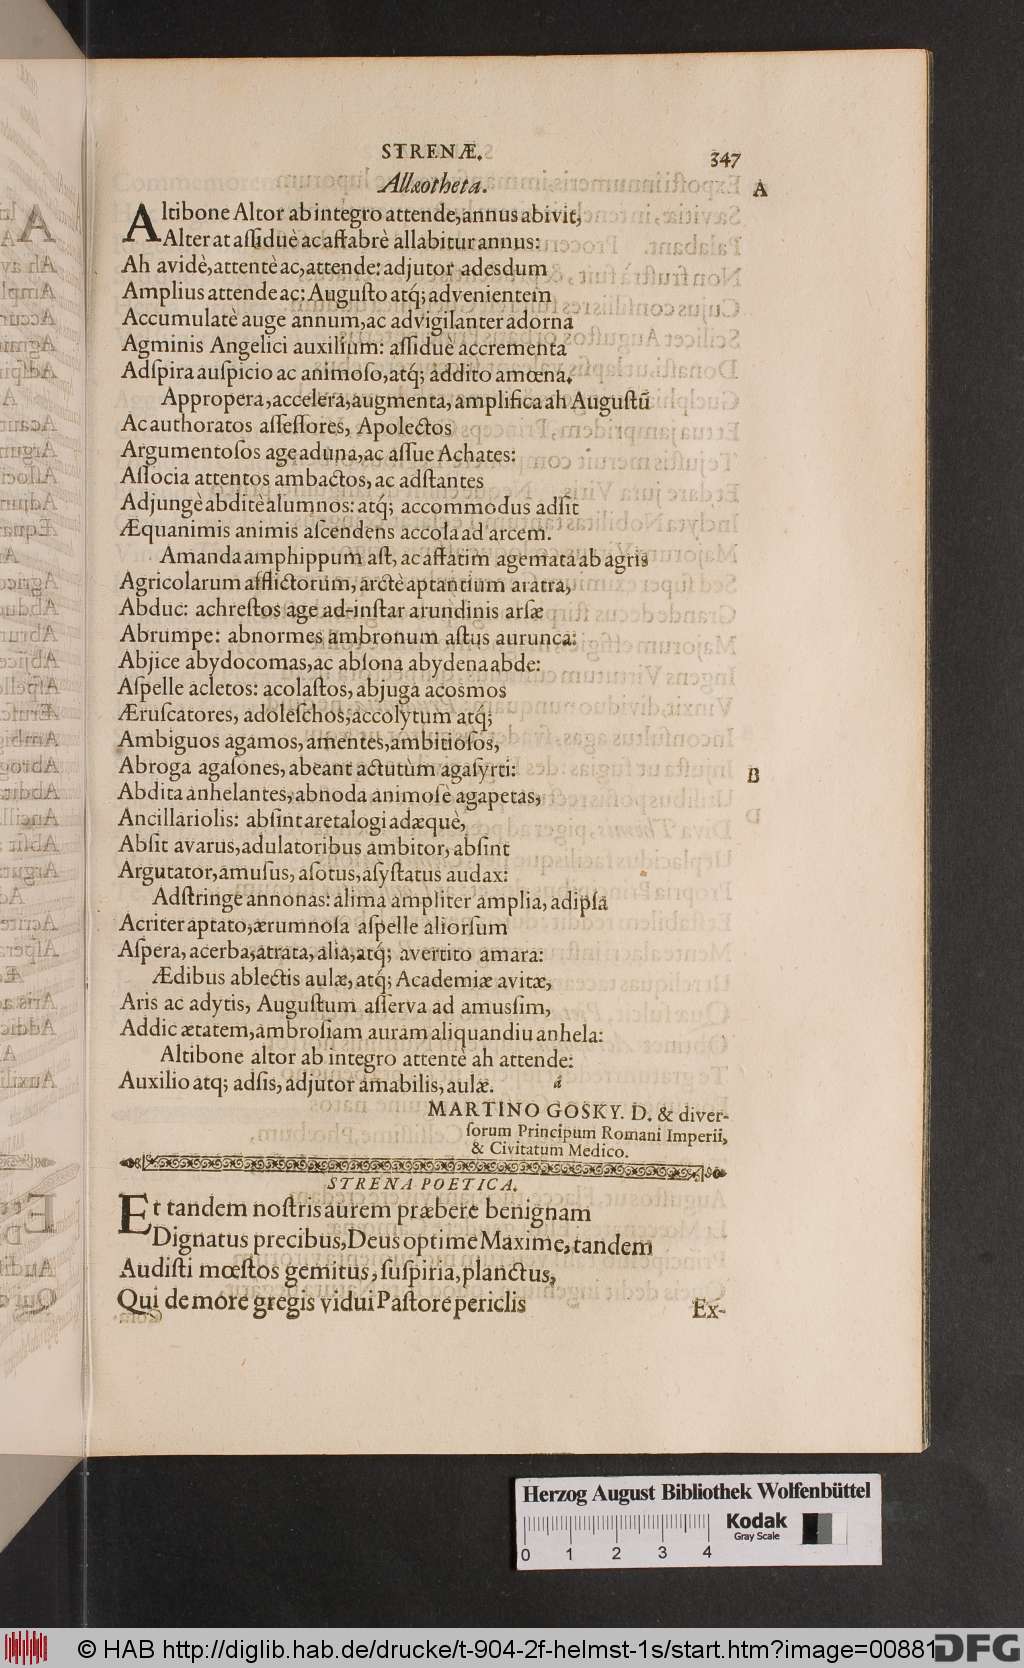 STRENÆ.
347
Allæotheta.
A
Altibone Altor ab integro attende, annus abivit,
Alter at aſſiduè ac affabrè allabitur annus:
Ah avidè, attentè ac, attende: adjutor adesdum
Amplius attende ac: Auguſto atq́; advenientem
Accumulatè auge annum, ac advigilanter adorna
Agminis Angelici auxilium: aſſiduè accrementa
Adſpira auſpicio ac animoſo, atq́; addito amœna.
Appropera, accelera, augmenta, amplifica ah Auguſtũ
Ac authoratos aſſeſſores, Apolectos
Argumentoſos age aduna, ac aſſue Achates:
Aſſocia attentos ambactos, ac adſtantes
Adjungè abditè alumnos: atq́; accommodus adſit
Æquanimis animis aſcendens accola ad arcem.
Amanda amphippum aſt, ac affatim agemata ab agris
Agricolarum afflictorum, arctè aptantium aratra,
Abduc: achreſtos age ad-inſtar arundinis arſæ
Abrumpe: abnormes ambronum aſtus aurunca:
Abjice abydocomas, ac abſona abydena abde:
Aſpelle acletos: acolaſtos, abjuga acosmos
Æruſcatores, adoleſchos, accolytum atq́;
Ambiguos agamos, amentes, ambitioſos,
Abroga agaſones, abeant actutùm agaſyrti:
B
Abdita anhelantes, abnoda animoſè agapetas,
Ancillariolis: abſint aretalogi adæquè,
Abſit avarus, adulatoribus ambitor, abſint
Argutator, amuſus, aſotus, aſyſtatus audax:
Adſtringe annonas: alima ampliter amplia, adipſa
Acriter aptato, ærumnoſa aſpelle aliorſum
Aſpera, acerba, atrata, alia, atq́; avertito amara:
Ædibus ablectis aulæ, atq́; Academiæ avitæ,
Aris ac adytis, Auguſtum aſſerva ad amusſim,
Addic ætatem, ambroſiam auram aliquandiu anhela:
Altibone altor ab integro attentè ah attende:
Auxilio atq; adſis, adjutor amabilis, aulæ.
á
MARTINO GOSKY. D. & diver-
ſorum Principum Romani Imperii,
& Civitatum Medico.
STRENA POETICA.
Et tandem noſtris aurem præbere benignam
Dignatus precibus, Deus optime Maxime, tandem
Audiſti mœſtos gemitus, ſuſpiria, planctus,
Qui de more gregis vidui Paſtore periclis
Ex-
Herzog August Bibliothek Wolfenbüttel
Kodak
Gray Scale
0 1 2 3 4
© HAB http://diglib.hab.de/drucke/t-904-2f-helmst-1s/start.htm?image=00881
DFG